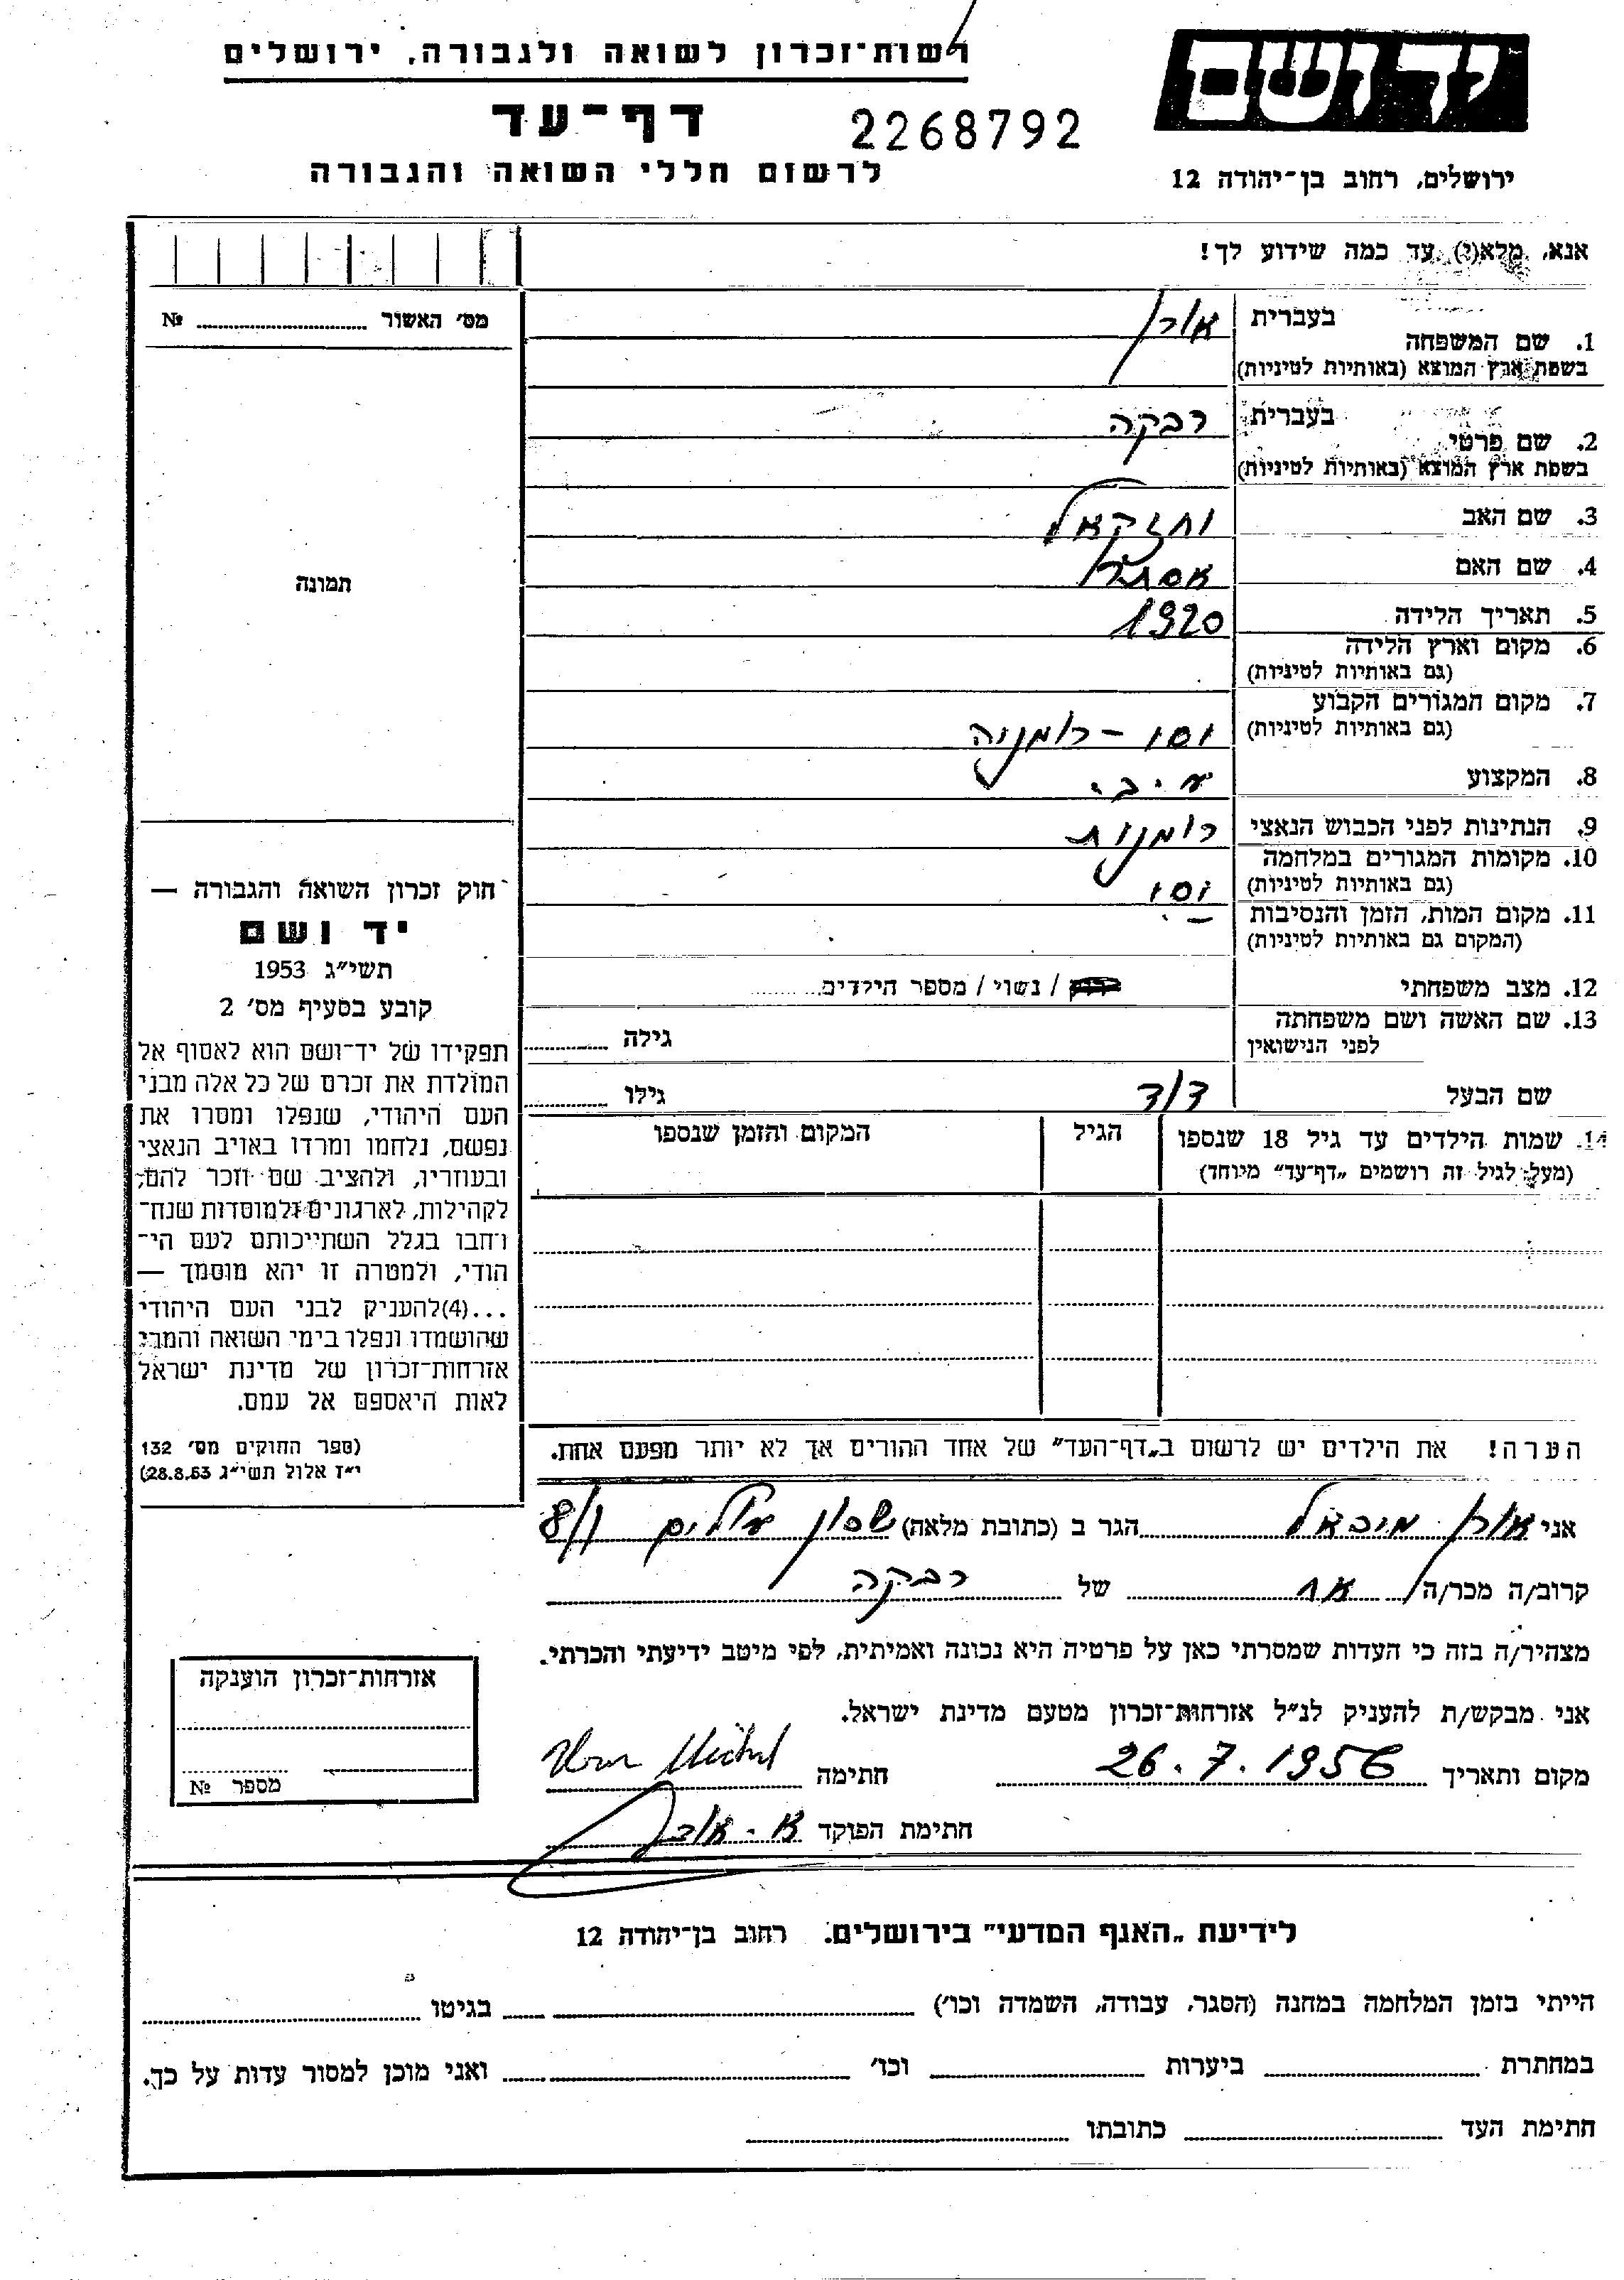 רשות־זכרון לשואה ולגבורה, ירושלים
יד ושם
דף־עד
2268792
לרשום חללי השואה והגבורה
ירושלים, רחוב בן־יהודה 12
אנא, מלא(י) עד כמה שידוע לך!
מס׳ האשור № 
1. שם המשפחה בעברית
בשפת ארץ המוצא (באותיות לטיניות)
2. שם פרטי בעברית רבקה
בשפת ארץ המוצא (באותיות לטיניות)
3. שם האב יחזקאל
4. שם האם אסתר
תמונה
5. תאריך הלידה 1920
6. מקום וארץ הלידה
(גם באותיות לטיניות)
7. מקום המגורים הקבוע
(גם באותיות לטיניות) יסי - רומניה
8. המקצוע
9. הנתינות לפני הכבוש הנאצי רומנית
10. מקומות המגורים במלחמה
(גם באותיות לטיניות) יסי
11. מקום המות, הזמן והנסיבות
(המקום גם באותיות לטיניות)
12. מצב משפחתי / נשוי / מספר הילדים
13. שם האשה ושם משפחתה
לפני הנישואין גילה
שם הבעל דוד גילו
14. שמות הילדים עד גיל 18 שנספו
(מעל לגיל זה רושמים „דף־עד״ מיוחד)
הגיל
המקום והזמן שנספו
חוק זכרון השואה והגבורה —
יד ושם
תשי״ג 1953
קובע בסעיף מס׳ 2
תפקידו של יד־ושם הוא לאסוף אל
המולדת את זכרם של כל אלה מבני
העם היהודי, שנפלו ומסרו את
נפשם, נלחמו ומרדו באויב הנאצי
ובעוזריו, ולהציב שם וזכר להם,
לקהילות, לארגונים ולמוסדות שנח־
רבו בגלל השתייכותם לעם הי־
הודי, ולמטרה זו יהא מוסמך —
...(4)להעניק לבני העם היהודי
שהושמדו ונפלו בימי השואה והמרי
אזרחות־זכרון של מדינת ישראל
לאות היאספם אל עמם.
(ספר החוקים מס׳ 132
י״ז אלול תשי״ג 28.8.53)
הערה! את הילדים יש לרשום ב„דף־העד״ של אחד ההורים אך לא יותר מפעם אחת.
אני מיכאל הגר ב (כתובת מלאה) שכון עולים
קרוב/ה מכר/ה אח של רבקה
מצהיר/ה בזה כי העדות שמסרתי כאן על פרטיה היא נכונה ואמיתית, לפי מיטב ידיעתי והכרתי.
אני מבקש/ת להעניק לנ״ל אזרחות־זכרון מטעם מדינת ישראל.
מקום ותאריך 26.7.1956 חתימה
חתימת הפוקד
אזרחות־זכרון הוענקה
מספר №
לידיעת „האגף המדעי״ בירושלים. רחוב בן־יהודה 12
הייתי בזמן המלחמה במחנה (הסגר, עבודה, השמדה וכו׳) בגיטו
במחתרת ביערות וכו׳ ואני מוכן למסור עדות על כך.
חתימת העד כתובתו